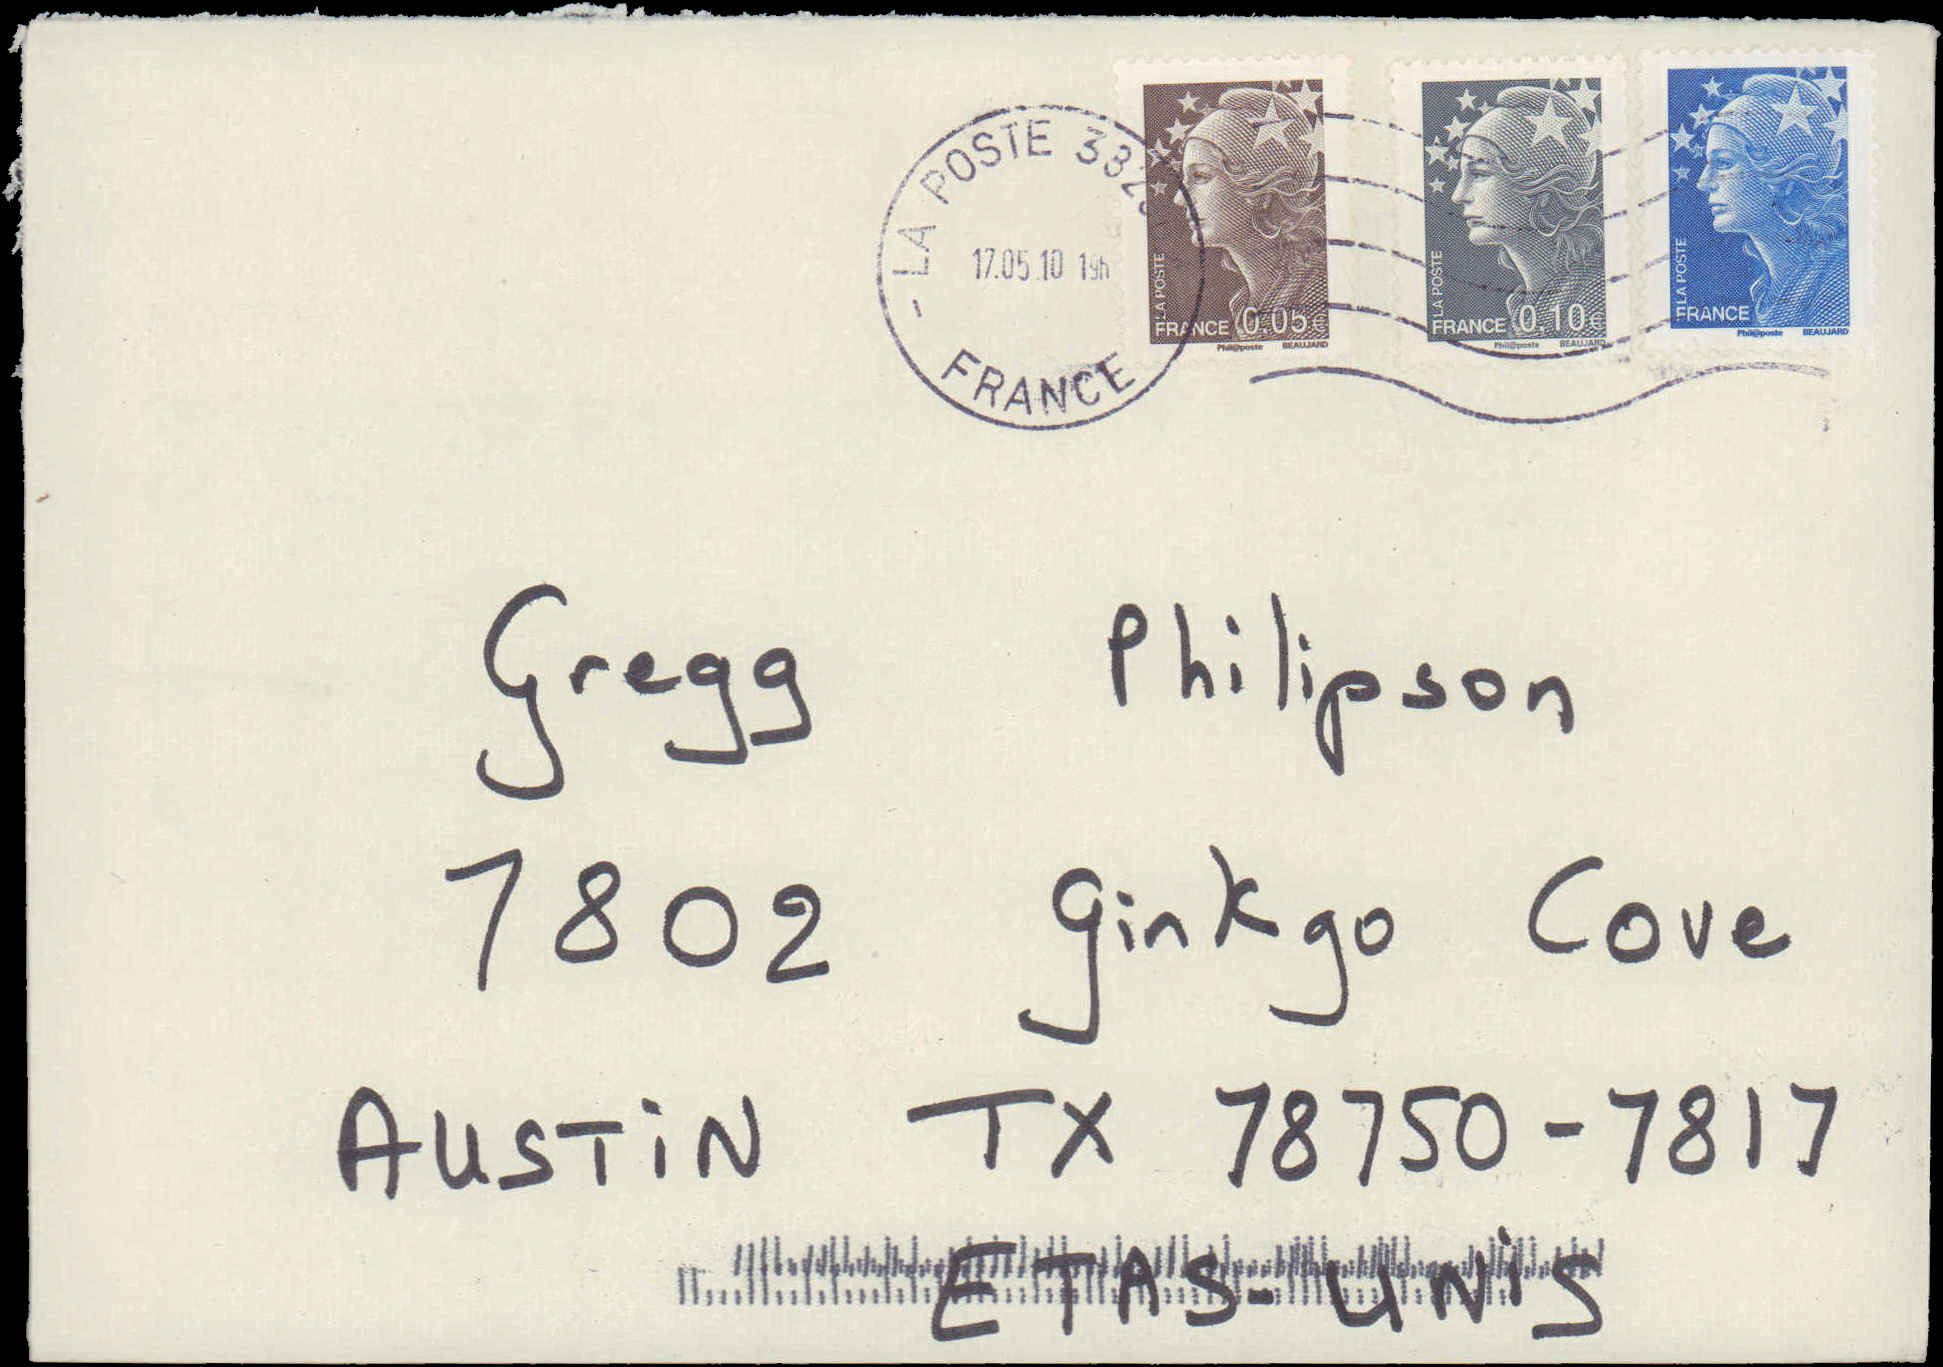 - LA POSTE
17.05.10 19h
FRANCE
LA POSTE
FRANCE 0.05€
Phil@poste BEAUJARD
LA POSTE
FRANCE 0.10€
Phil@poste BEAUJARD
LA POSTE
FRANCE
Phil@poste BEAUJARD
Gregg Philipson
7802 Ginkgo Cove
AUSTiN TX 78750-7817
ETAS-UNiS